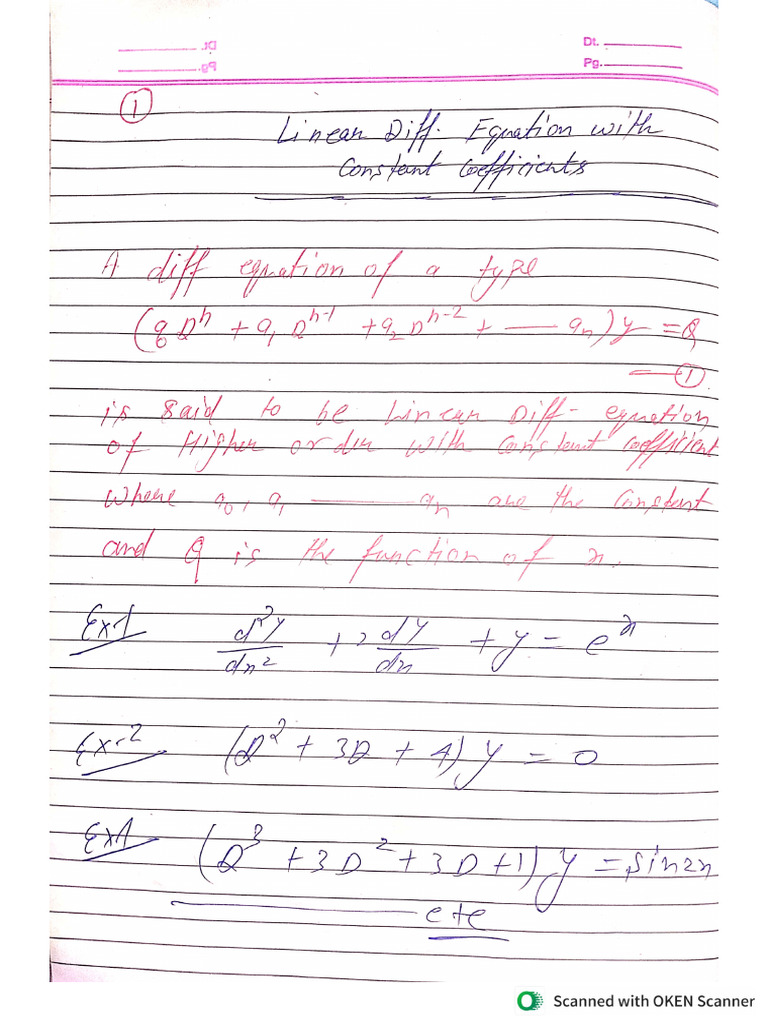 Dt.
Pg.
①
Linear Diff. Equation with
Constant Coefficients
A diff equation of a type
(a₀Dⁿ + a₁Dⁿ⁻¹ + a₂Dⁿ⁻² + — aₙ)y = Q
— ①
is said to be Linear Diff- equation
of Higher order with constant coefficient
where a₀, a₁ ——— aₙ are the constant
and Q is the function of x.
Ex1 d²y/dx² + 2dy/dx + y = eˣ
Ex-2 (D² + 3D + 4)y = 0
Ex1 (D³ + 3D² + 3D + 1)y = sin2x
——— etc
Scanned with OKEN Scanner